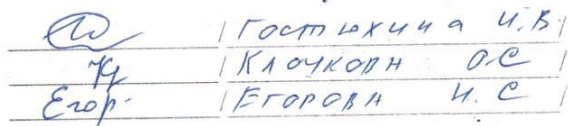 / Гостюхина И.В.
/ Клочкова О.С
Егор. / Егорова И.С